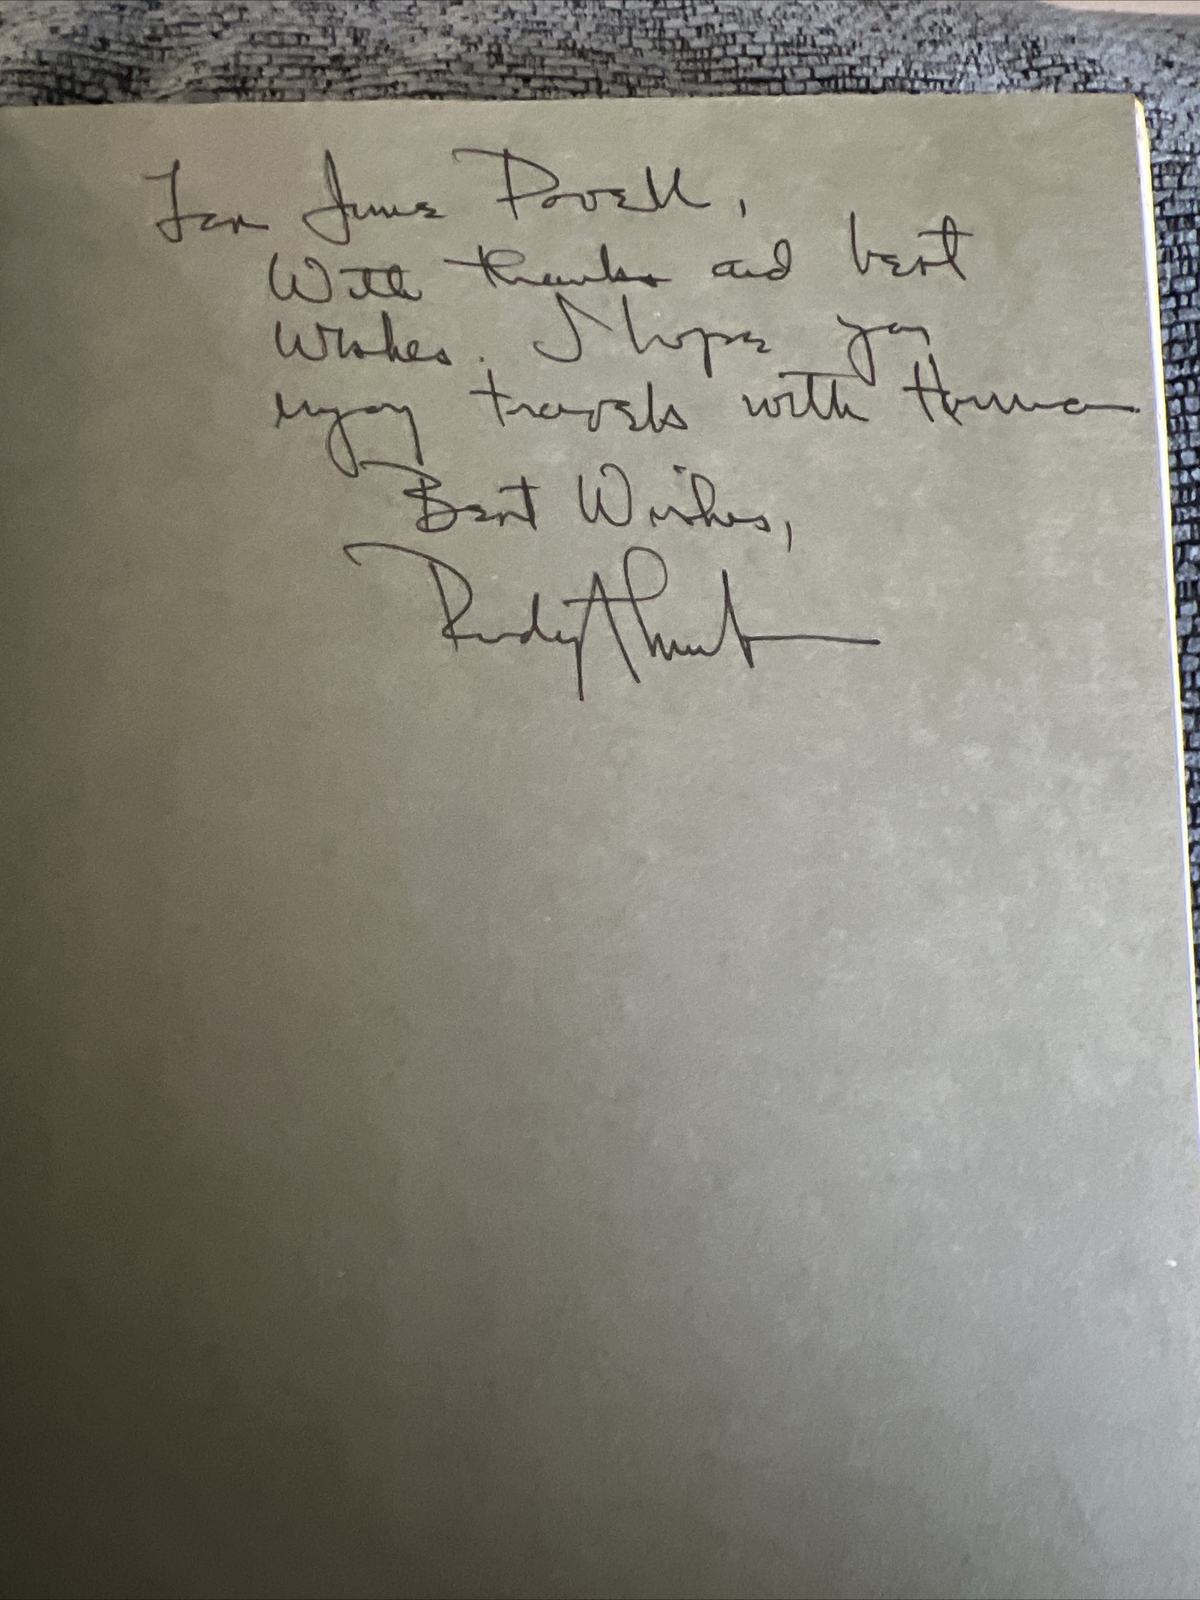 For June
With thanks and best
Wishes. I hope you
enjoy travels with
Best Wishes,
Rudy